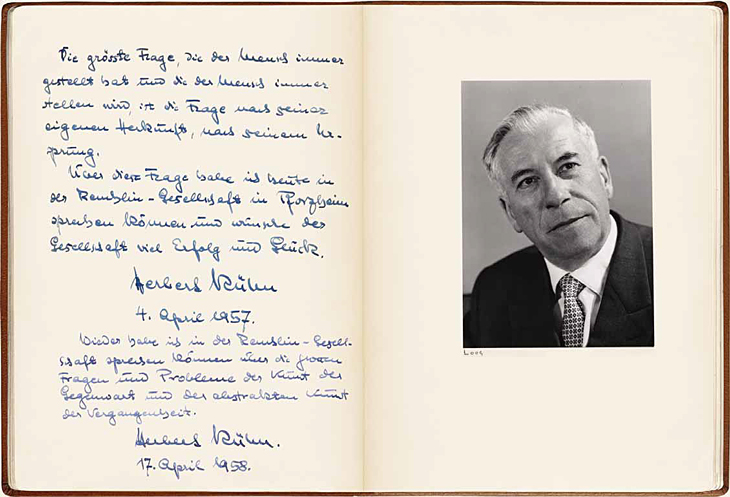 Die grösste Frage, die der Mensch immer
gestellt hat und die der Mensch immer
stellen wird, ist die Frage nach seiner
eigenen Herkunft, nach seinem Ur-
sprung.
Über diese Frage habe ich heute in
der Reuchlin-Gesellschaft in Pforzheim
sprechen können und wünsche der
Gesellschaft viel Erfolg und Glück.
Herbert Kühn
4. April 1957.
Wieder habe ich in der Reuchlin-Gesell-
schaft sprechen können über die grossen
Fragen und Probleme der Kunst der
Gegenwart und der abstrakten Kunst
der Vergangenheit.
Herbert Kühn.
17. April 1958.
Loos